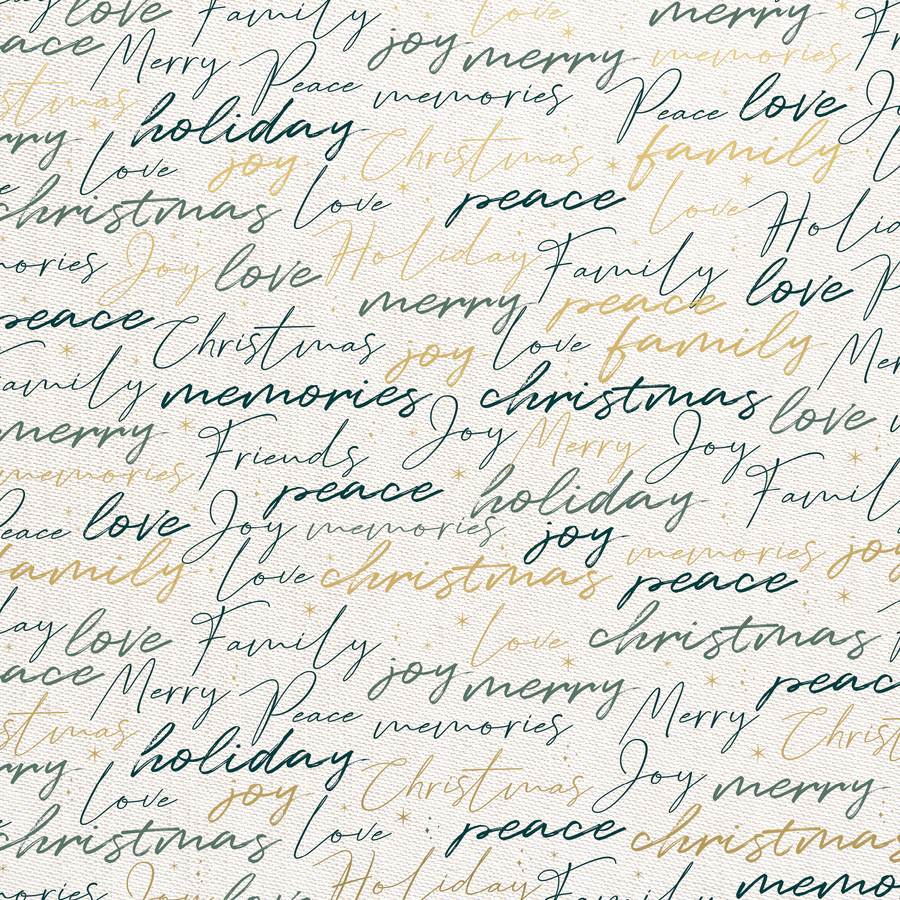 love Family Love merry
peace Merry joy merry memories Fr
stmas Peace memories Peace love Jo
merry holiday Christmas family
Love joy
christmas Love peace Love Holiday
memories Joy love Holiday Family
merry peace love P
peace Christmas joy Love family Mer
Family memories christmas love
merry Friends Joy Merry Joy
memories peace holiday Family
Peace love Joy memories joy memories joy
family Love christmas peace
day love Family Love christmas
peace Merry joy merry peace
stmas Peace memories Merry Christ
merry holiday Christmas Joy merry
Love joy
christmas Love peace christmas
memories Joy love Holiday Family memo